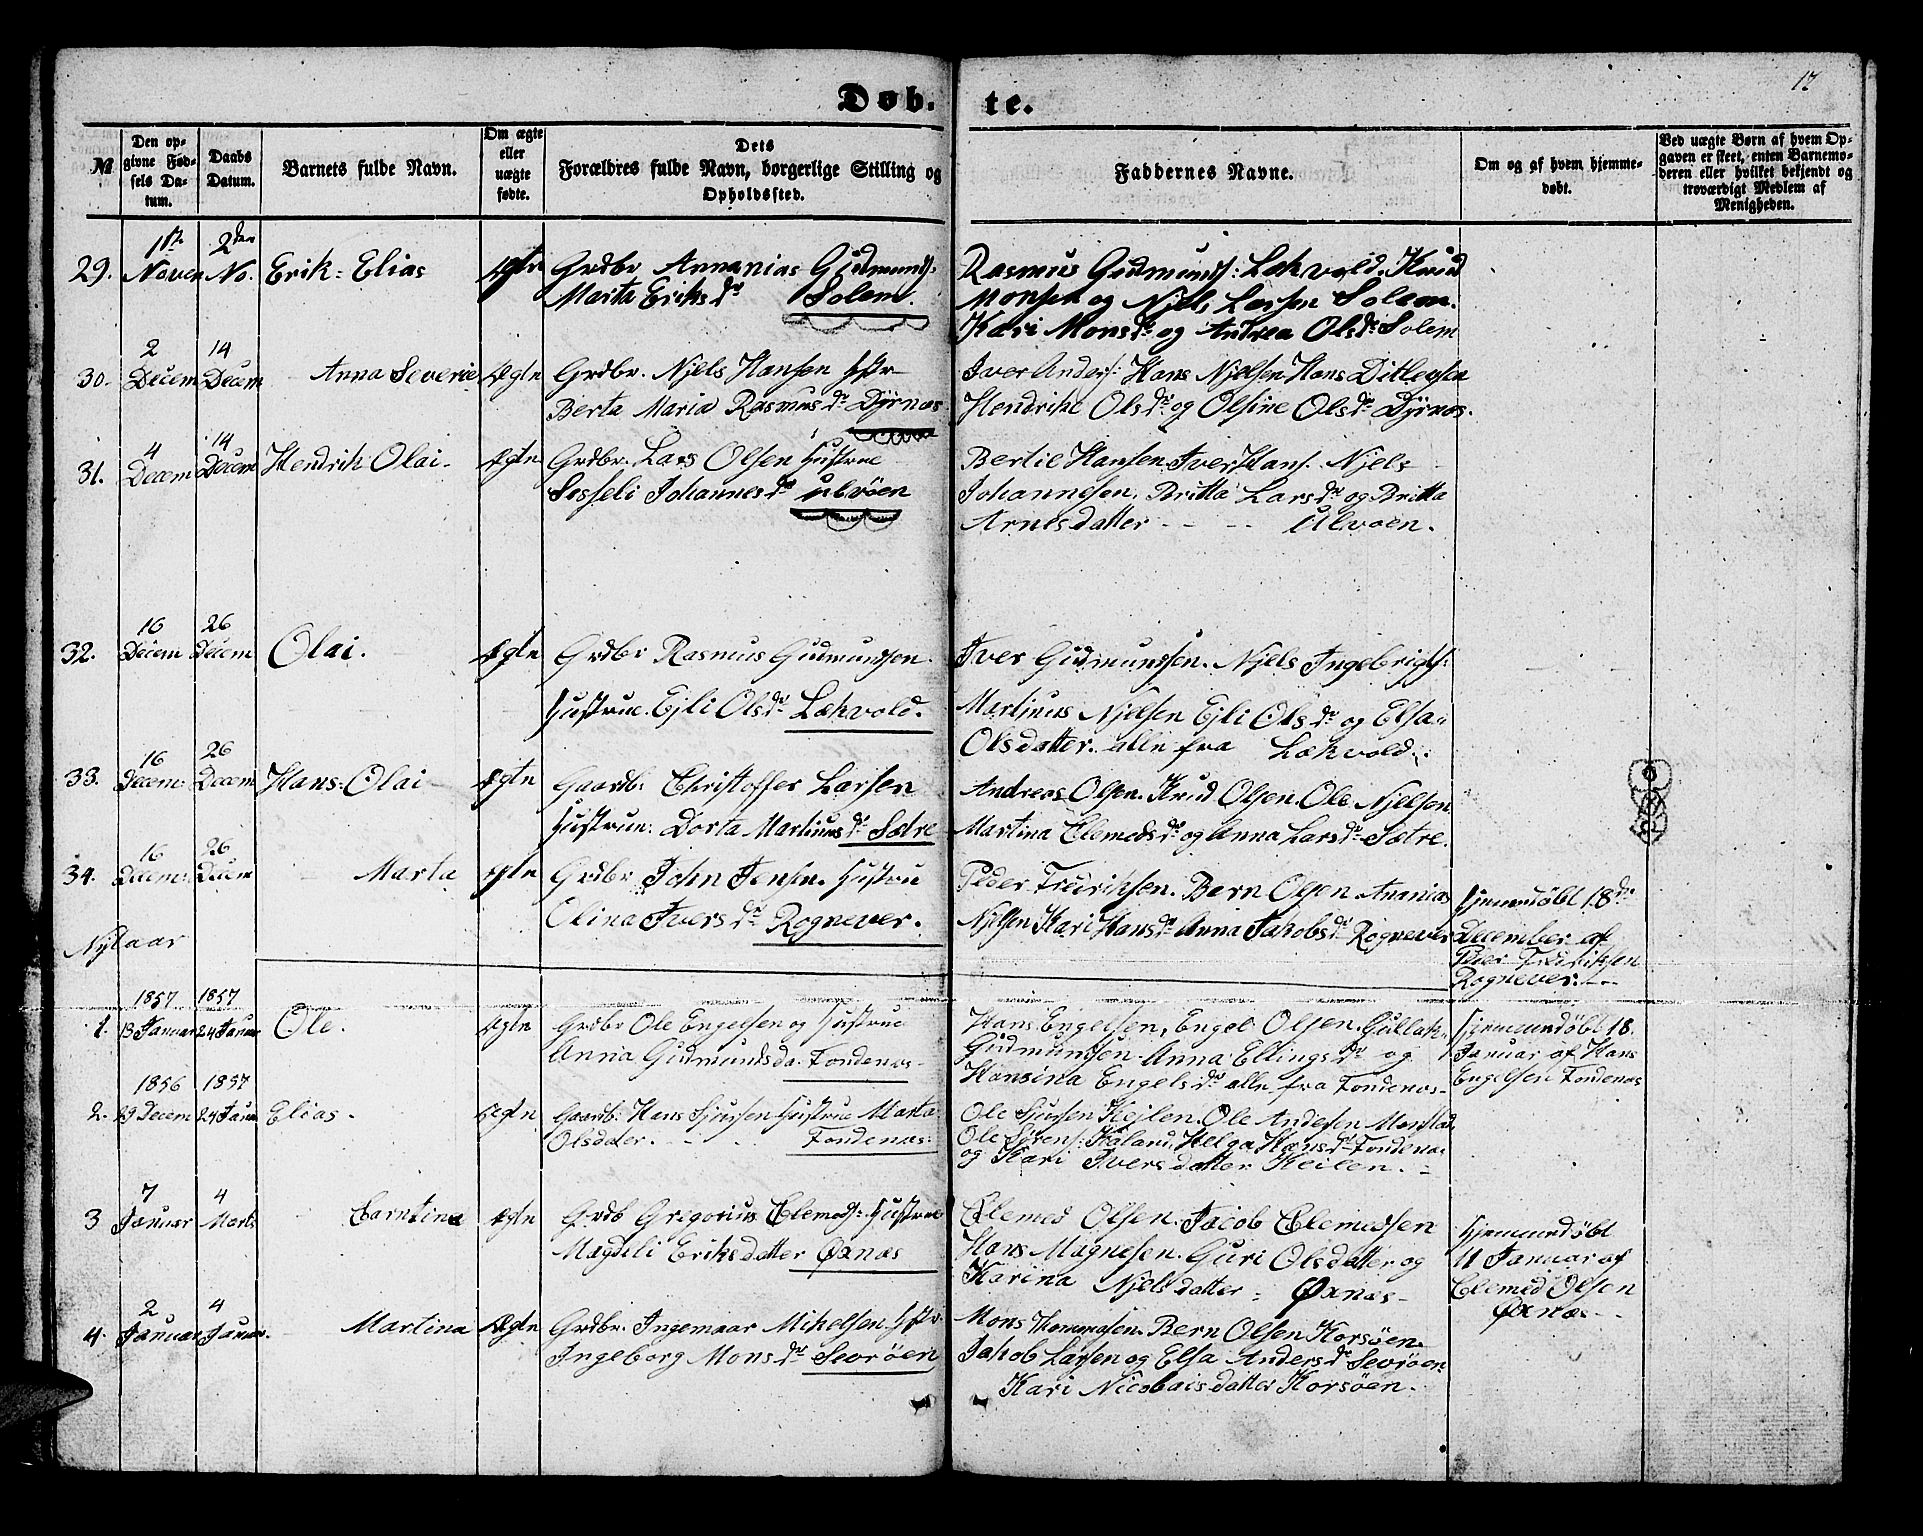 17
Døb. te.
No
Den opgivne Fødsels Datum.
Daabs Datum.
Barnets fulde Navn.
Om ægte eller uægte fødte.
Dets Forældres fulde Navn, borgerlige Stilling og Opholdssted.
Faddernes Navne.
Om og af hvem hjemmedøbt.
Ved uægte Børn af hvem Opgaven er skeet, enten Barnemoderen eller hvilket bekjendt og troværdigt Medlem af Menigheden.
29. 1ste Novem 2den No. Erik= Elias Ægte Grdbr Annanias Gudmunds:
Marta Eriksdr Solem.
Rasmus Gudmunds: Lækvold. Knud
Monsen og Njels Larsen Solem.
Kari Monsdr og Andrea Olsdr Solem
30. 2 Decem 14 Decem Anna Severie Ægte Grdbr. Njels Hansen Hstr
Berta Maria Rasmusdr Dyrnæs
Iver Anders: Hans Njelsen Hans Ditlevsen
Hendrike Olsdr og Olsine Olsdr Dyrnæs.
31. 4 Decem 14 Decem Hendrik Olai. Ægte Grdbr. Lars Olsen Hustrue
Sesseli Johannesdr Ulvöen
Bertie Hansen Iver Hans. Njels
Johannesen. Britta Larsdr og Britta
Arnesdatter - - - Ulvöen.
32. 16 Decem 26 Decem Olai. Ægte Grdbr Rasmus Gudmundsen.
Hustrue. Ejli Olsdr Lækvold.
Iver Gudmundsen. Njels Ingebrigts:
Martinus Njelsen Ejli Olsdr og Elsa
Olsdatter. alle fra Lækvold.
33. 16 Decem: 26 Decem Hans: Olai Ægte Gaardb: Christoffer Larsen
Hustrue: Dorta Martinusdr Sætre
Andreas Olsen. Knud Olsen. Ole Njelsen
Martina Clemedsdr og Anna Larsdr Sætre.
34. 16 Decem: 26 Decem Marta Ægte Grdbr John Jensen. Hustrue
Olina Iversdr Rognever.
Peder Fredriksen. Bern Olsen Ananias
Njelsen Kari Hansdr Anna Jakobsdr Rognever
Hjemmedöbt 18de
December af
Peder Fredriksen
Rognever.
Nytaar
1. 1857 13 Januar 1857 24 Januar Ole. Ægte Grdbr Ole Engelsen og Hustrue
Anna Gudmundsda. Tondenæs
Hans Engelsen, Engel Olsen. Gullak
Gudmundsen. Anna Ellingsdr og
Hansina Engelsdr alle fra Tondenæs
Hjemmedöbt 18.
Januar af Hans
Engelsen Tondenæs
2. 1856 29 Decem 1857 24 Janua Elias. Ægte Gaardb: Hans Sjursen Hustrue Marta
Olsdater. - - Tondenæs:
Ole Sjursen Kejlen. Ole Andersen Monstad
Ole Sörens: Haland, Helga Hansdr Tondenæs
og Kari Iversdatter Keilen.
3 7 Januar 4 Marts Carntina Ægte Grdb Gregorius Clemeds: Hustrue
Magdeli Eriksdatter Øxnæs
Clemed Olsen. Jacob Clemedsen
Hans Magnesen. Guri Olsdatter og
Karina Njelsdatter - Øxnæs
Hjemmedöbt
11 Januar af
Clemed Olsen
Øxnæs
4. 2 Januar 4 Januar. Martina Ægte Grdbr. Ingemaar Mikelsen Hstr.
Ingeborg Monsdr Sevröen
Mons Thommasen. Bern Olsen Korsöen.
Jakob Larsen og Elsa Andersdr Sevröen
Kari Nicolaisdatter Korsöen.